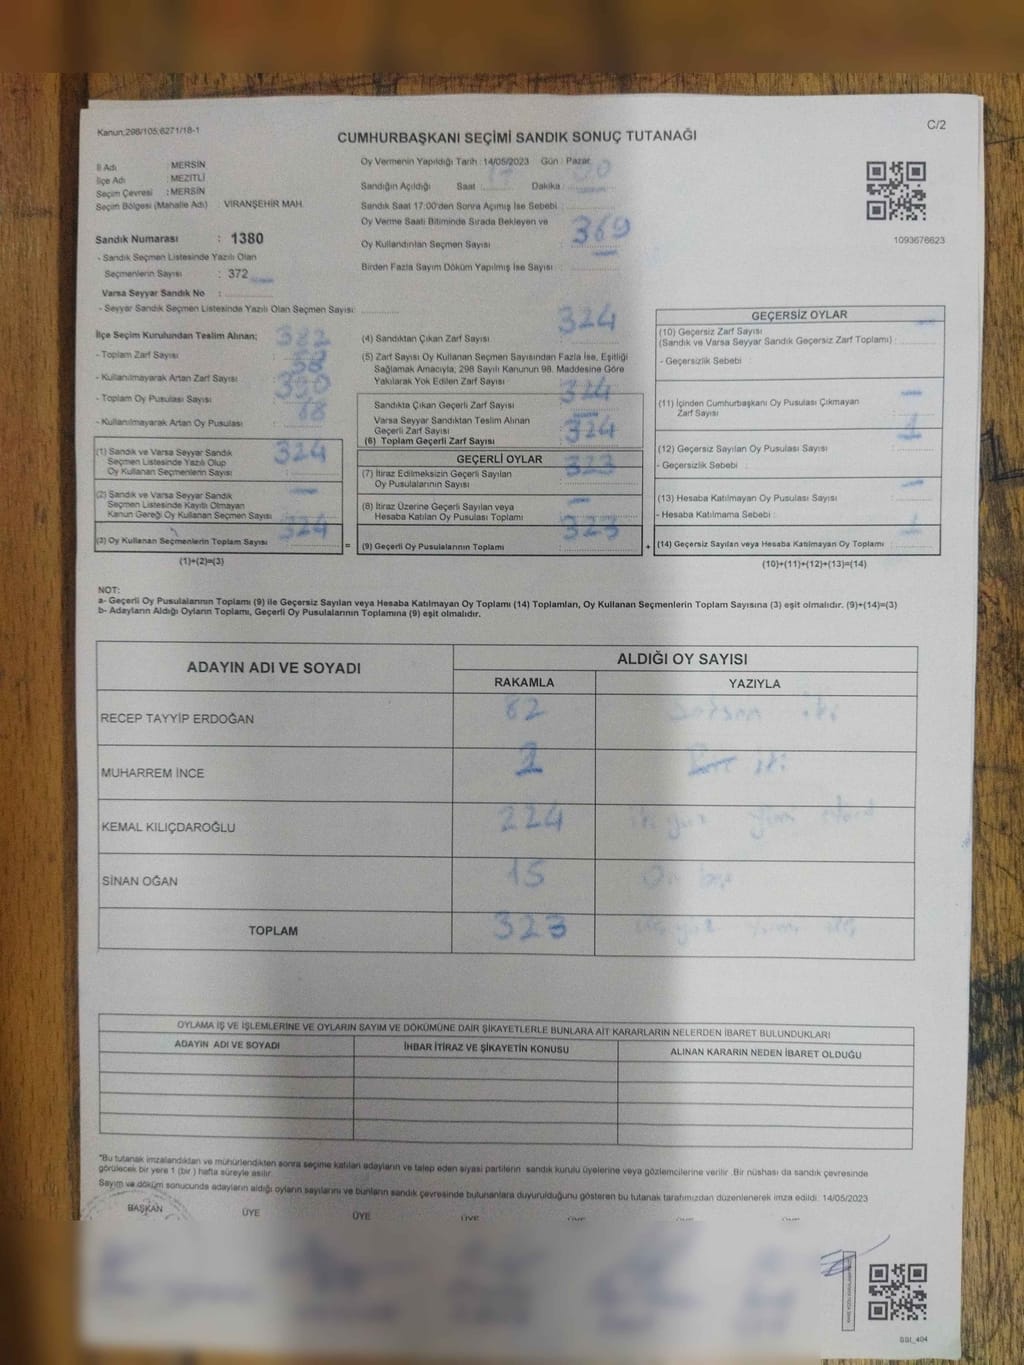 Kanun;298/105;6271/18-1
C/2
CUMHURBAŞKANI SEÇİMİ SANDIK SONUÇ TUTANAĞI
İl Adı : MERSİN
İlçe Adı : MEZİTLİ
Seçim Çevresi : MERSİN
Seçim Bölgesi (Mahalle Adı) : VİRANŞEHİR MAH.
Sandık Numarası : 1380
- Sandık Seçmen Listesinde Yazılı Olan
Seçmenlerin Sayısı : 372
Varsa Seyyar Sandık No :
- Seyyar Sandık Seçmen Listesinde Yazılı Olan Seçmen Sayısı:
Oy Vermenin Yapıldığı Tarih : 14/05/2023 Gün : Pazar
Sandığın Açıldığı Saat : Dakika :
Sandık Saat 17:00'den Sonra Açımış İse Sebebi :
Oy Verme Saati Bitiminde Sırada Bekleyen ve
Oy Kullandırılan Seçmen Sayısı : 369
Birden Fazla Sayım Döküm Yapılmış İse Sayısı :
1093676623
İlçe Seçim Kurulundan Teslim Alınan:
- Toplam Zarf Sayısı : 382
- Kullanılmayarak Artan Zarf Sayısı : 58
- Toplam Oy Pusulası Sayısı :
- Kullanılmayarak Artan Oy Pusulası :
(1) Sandık ve Varsa Seyyar Sandık
Seçmen Listesinde Yazılı Olup
Oy Kullanan Seçmenlerin Sayısı : 324
(2) Sandık ve Varsa Seyyar Sandık
Seçmen Listesinde Kayıtlı Olmayan
Kanun Gereği Oy Kullanan Seçmen Sayısı : —
(3) Oy Kullanan Seçmenlerin Toplam Sayısı : 324
(1)+(2)=(3)
(4) Sandıktan Çıkan Zarf Sayısı : 324
(5) Zarf Sayısı Oy Kullanan Seçmen Sayısından Fazla İse, Eşitliği
Sağlamak Amacıyla, 298 Sayılı Kanunun 98. Maddesine Göre
Yakılarak Yok Edilen Zarf Sayısı :
Sandıkta Çıkan Geçerli Zarf Sayısı : 324
Varsa Seyyar Sandıktan Teslim Alınan
Geçerli Zarf Sayısı : —
(6) Toplam Geçerli Zarf Sayısı : 324
GEÇERLİ OYLAR
(7) İtiraz Edilmeksizin Geçerli Sayılan
Oy Pusulalarının Sayısı : 323
(8) İtiraz Üzerine Geçerli Sayılan veya
Hesaba Katılan Oy Pusulası Toplamı : —
= (9) Geçerli Oy Pusulalarının Toplamı : 323
GEÇERSİZ OYLAR
(10) Geçersiz Zarf Sayısı
(Sandık ve Varsa Seyyar Sandık Geçersiz Zarf Toplamı) : —
- Geçersizlik Sebebi :
(11) İçinden Cumhurbaşkanı Oy Pusulası Çıkmayan
Zarf Sayısı : —
(12) Geçersiz Sayılan Oy Pusulası Sayısı : 1
- Geçersizlik Sebebi :
(13) Hesaba Katılmayan Oy Pusulası Sayısı : —
- Hesaba Katılmama Sebebi :
+ (14) Geçersiz Sayılan veya Hesaba Katılmayan Oy Toplamı : 1
(10)+(11)+(12)+(13)=(14)
NOT:
a- Geçerli Oy Pusulalarının Toplamı (9) ile Geçersiz Sayılan veya Hesaba Katılmayan Oy Toplamı (14) Toplamları, Oy Kullanan Seçmenlerin Toplam Sayısına (3) eşit olmalıdır. (9)+(14)=(3)
b- Adayların Aldığı Oyların Toplamı, Geçerli Oy Pusulalarının Toplamına (9) eşit olmalıdır.
ADAYIN ADI VE SOYADI ALDIĞI OY SAYISI
RAKAMLA YAZIYLA
RECEP TAYYİP ERDOĞAN 82 Seksen iki
MUHARREM İNCE 2 iki
KEMAL KILIÇDAROĞLU 224 iki yüz yirmi dört
SİNAN OĞAN 15 On beş
TOPLAM 323 üç yüz yirmi üç
OYLAMA İŞ VE İŞLEMLERİNE VE OYLARIN SAYIM VE DÖKÜMÜNE DAİR ŞİKAYETLERLE BUNLARA AİT KARARLARIN NELERDEN İBARET BULUNDUKLARI
ADAYIN ADI VE SOYADI İHBAR İTİRAZ VE ŞİKAYETİN KONUSU ALINAN KARARIN NEDEN İBARET OLDUĞU
"Bu tutanak imzalandıktan ve mühürlendikten sonra seçime katılan adayların ve talep eden siyasi partilerin sandık kurulu üyelerine veya gözlemcilerine verilir .Bir nüshası da sandık çevresinde
görülecek bir yere 1 (bir) hafta süreyle asılır.
Sayım ve döküm sonucunda adayların aldığı oyların sayılarını ve bunların sandık çevresinde bulunanlara duyurulduğunu gösteren bu tutanak tarafımızdan düzenlenerek imza edildi. 14/05/2023
BAŞKAN ÜYE ÜYE ÜYE ÜYE ÜYE ÜYE